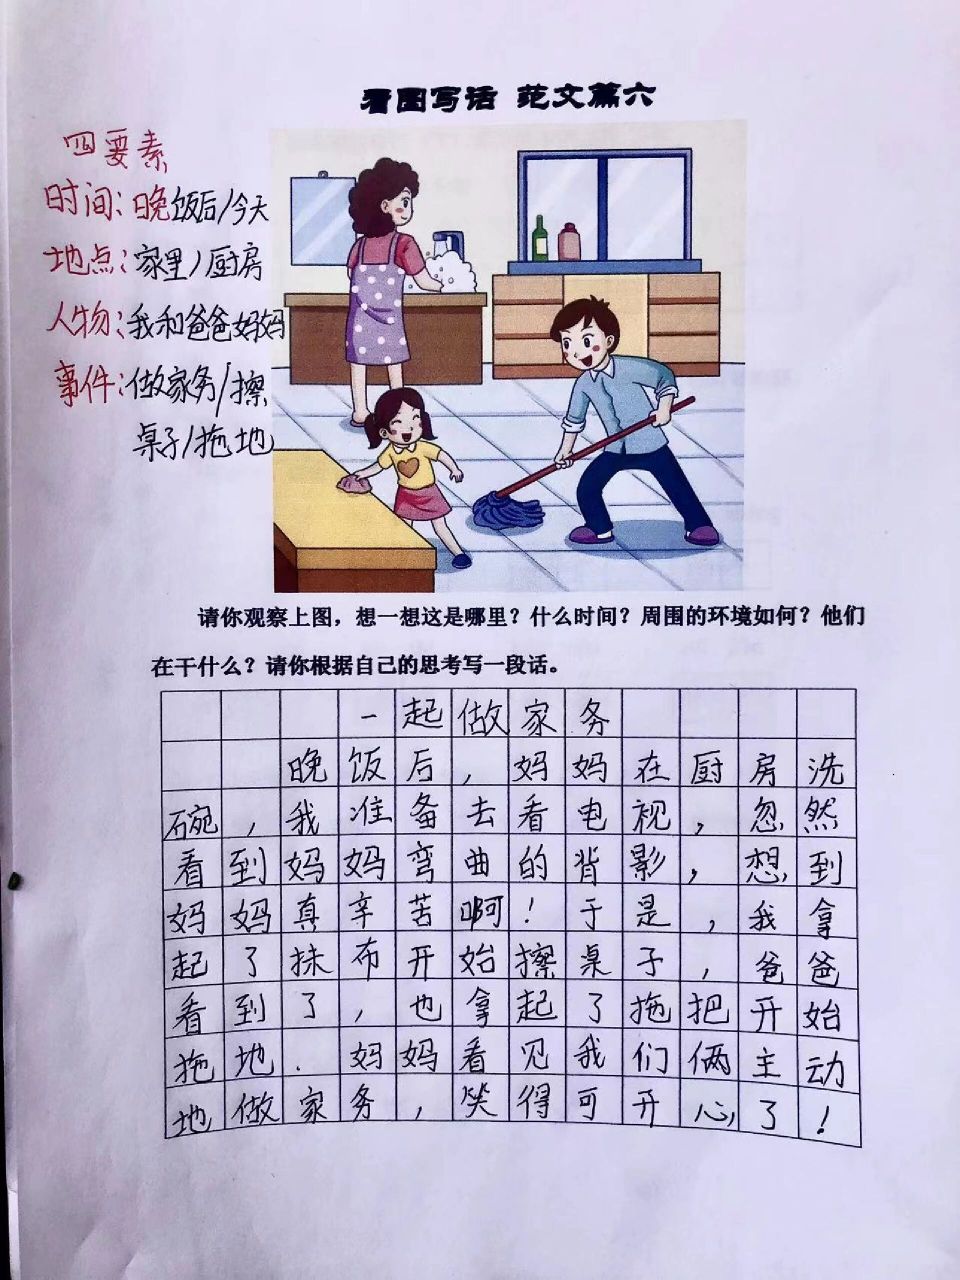 看图写话 范文篇六
四要素
时间：晚饭后/今天
地点：家里/厨房
人物：我和爸爸妈妈
事件：做家务/擦
桌子/拖地
请你观察上图，想一想这是哪里？什么时间？周围的环境如何？他们
在干什么？请你根据自己的思考写一段话。
一起做家务
晚饭后，妈妈在厨房洗
碗，我准备去看电视，忽然
看到妈妈弯曲的背影，想到
妈妈真辛苦啊！于是，我拿
起了抹布开始擦桌子，爸爸
看到了，也拿起了拖把开始
拖地．妈妈看见我们俩主动
地做家务，笑得可开心了！